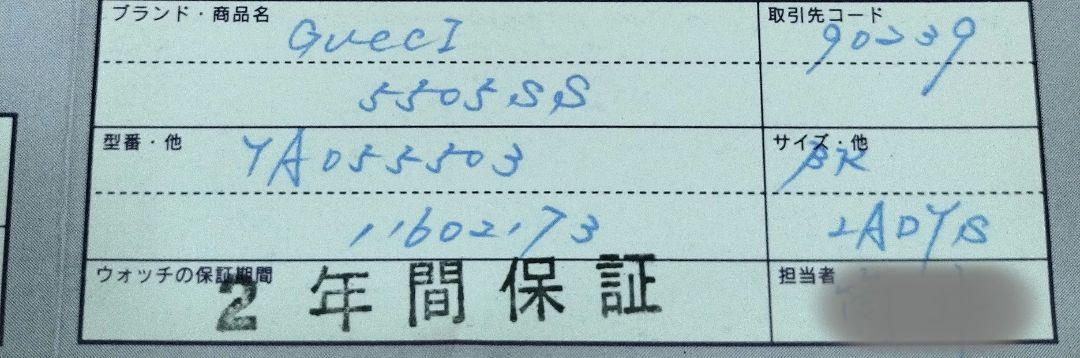 ブランド・商品名
GUCCI
5505SS
取引先コード
90239
型番・他
YA055503
11602173
サイズ・他
BK
LADYS
ウォッチの保証期間
2年間保証
担当者